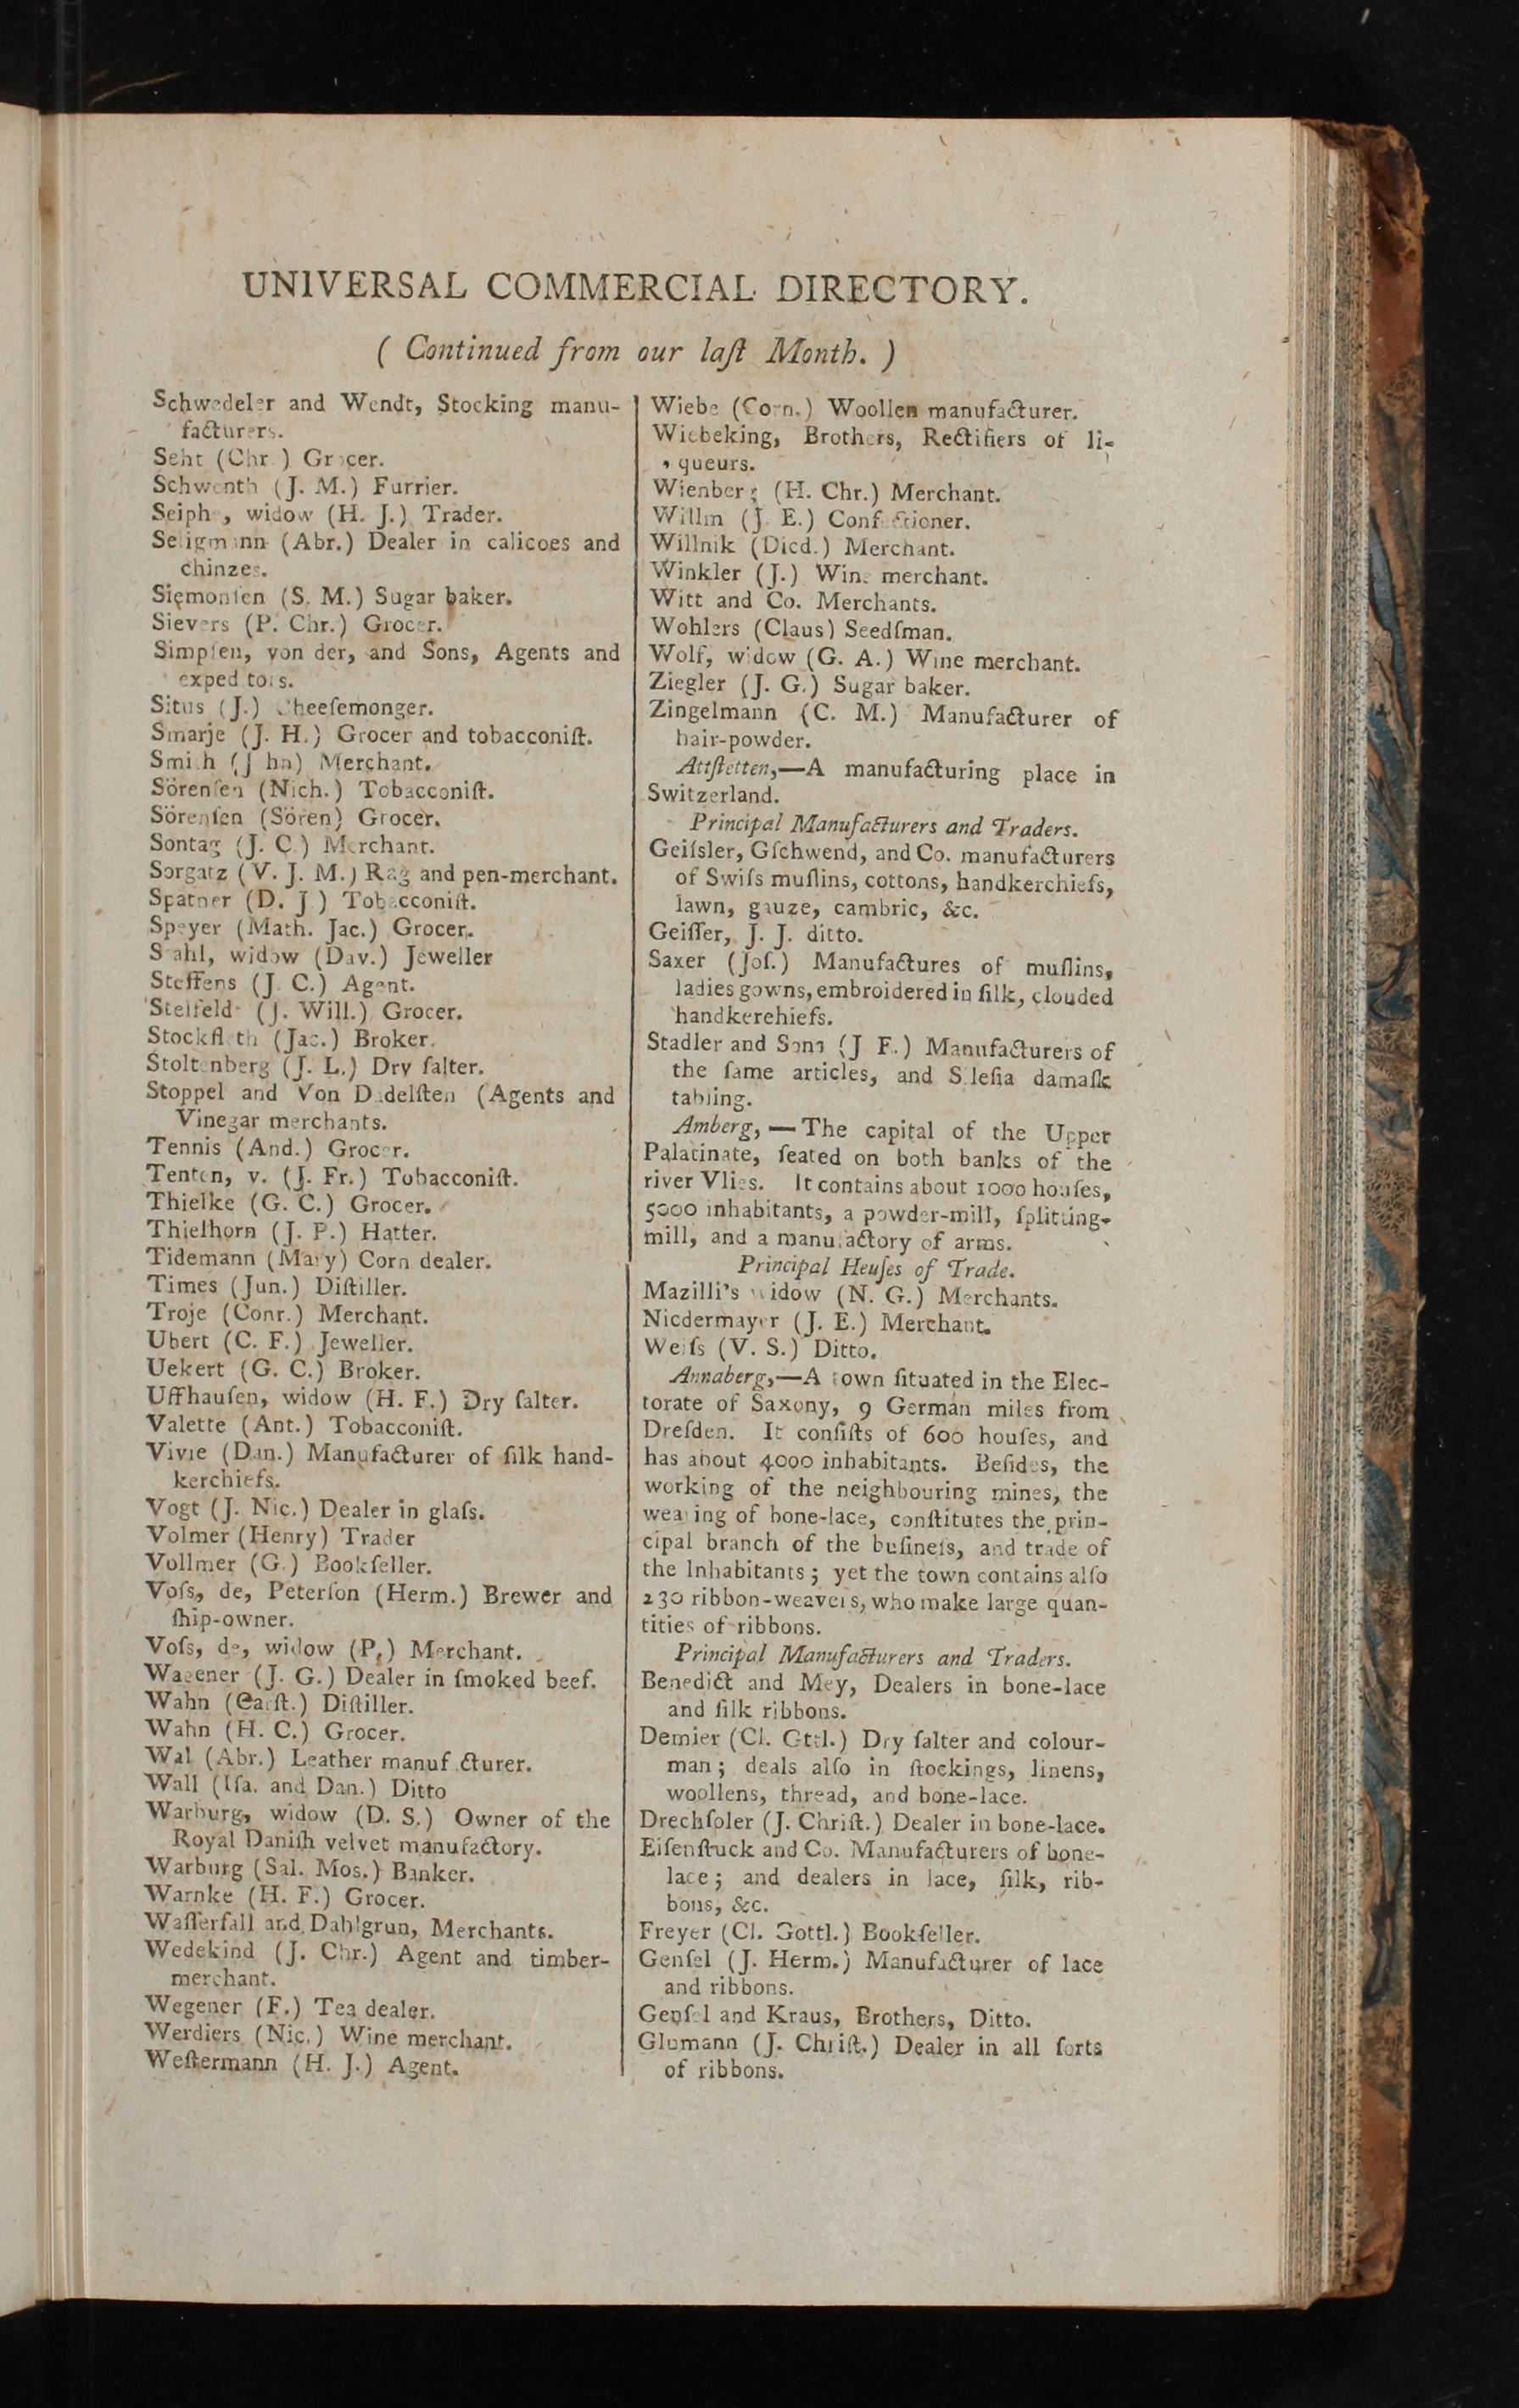 UNIVERSAL COMMERCIAL DIRECTORY.
( Continued from our laſt Month. )
Schwedeler and Wendt, Stocking manu-
facturers.
Seht (Chr.) Grocer.
Schwenth (J. M.) Furrier.
Seiphe, widow (H. J.) Trader.
Seligmann (Abr.) Dealer in calicoes and
chinzes.
Siemonſen (S. M.) Sugar baker.
Sievers (P. Chr.) Grocer.
Simpſen, von der, and Sons, Agents and
expeditors.
Situs (J.) Cheeſemonger.
Smarje (J. H.) Grocer and tobacconiſt.
Smith (John) Merchant.
Sörenſen (Nich.) Tobacconiſt.
Sörenſen (Sören) Grocer.
Sontag (J. C.) Merchant.
Sorgatz (V. J. M.) Rag and pen-merchant.
Spatner (D. J.) Tobacconiſt.
Speyer (Math. Jac.) Grocer.
Stahl, widow (Dav.) Jeweller
Steffens (J. C.) Agent.
Steifeld (J. Will.) Grocer.
Stockfleth (Jac.) Broker.
Stoltenberg (J. L.) Dry ſalter.
Stoppel and Von Dadelſten (Agents and
Vinegar merchants.
Tennis (And.) Grocer.
Tenten, v. (J. Fr.) Tobacconiſt.
Thielke (G. C.) Grocer.
Thielhorn (J. P.) Hatter.
Tidemann (Mary) Corn dealer.
Times (Jun.) Diſtiller.
Troje (Conr.) Merchant.
Ubert (C. F.) Jeweller.
Uekert (G. C.) Broker.
Uffhauſen, widow (H. F.) Dry ſalter.
Valette (Ant.) Tobacconiſt.
Vivie (Dan.) Manufacturer of ſilk hand-
kerchiefs.
Vogt (J. Nic.) Dealer in glaſs.
Volmer (Henry) Trader
Vollmer (G.) Bookſeller.
Voſs, de, Peterſon (Herm.) Brewer and
ſhip-owner.
Voſs, de, widow (P.) Merchant.
Wagener (J. G.) Dealer in ſmoked beef.
Wahn (Carſt.) Diſtiller.
Wahn (H. C.) Grocer.
Wal (Abr.) Leather manufacturer.
Wall (Iſa. and Dan.) Ditto
Warburg, widow (D. S.) Owner of the
Royal Daniſh velvet manufactory.
Warburg (Sal. Mos.) Banker.
Warnke (H. F.) Grocer.
Waſſerfall and Dahlgrun, Merchants.
Wedekind (J. Chr.) Agent and timber-
merchant.
Wegener (F.) Tea dealer.
Werdiers (Nic.) Wine merchant.
Weſtermann (H. J.) Agent.
Wiebe (Corn.) Woollen manufacturer.
Wiebeking, Brothers, Rectifiers of li-
queurs.
Wienberg (H. Chr.) Merchant.
Willm (J. E.) Confectioner.
Willnik (Died.) Merchant.
Winkler (J.) Wine merchant.
Witt and Co. Merchants.
Wohlers (Claus) Seedſman.
Wolf, widow (G. A.) Wine merchant.
Ziegler (J. G.) Sugar baker.
Zingelmann (C. M.) Manufacturer of
hair-powder.
Attſtetten,—A manufacturing place in
Switzerland.
Principal Manufacturers and Traders.
Geiſsler, Gſchwend, and Co. manufacturers
of Swiſs muſlins, cottons, handkerchiefs,
lawn, gauze, cambric, &c.
Geiſſer, J. J. ditto.
Saxer (Joſ.) Manufactures of muſlins,
ladies gowns, embroidered in ſilk, clouded
handkerehiefs.
Stadler and Sons (J F.) Manufacturers of
the ſame articles, and Sileſia damaſk
tabling.
Amberg,—The capital of the Upper
Palatinate, ſeated on both banks of the
river Vlies. It contains about 1000 houſes,
5000 inhabitants, a powder-mill, ſplitting-
mill, and a manufactory of arms.
Principal Heuſes of Trade.
Mazilli's widow (N. G.) Merchants.
Niedermayer (J. E.) Merchant.
Weiſs (V. S.) Ditto.
Annaberg,—A town ſituated in the Elec-
torate of Saxony, 9 German miles from
Dreſden. It conſiſts of 600 houſes, and
has about 4000 inhabitants. Beſides, the
working of the neighbouring mines, the
weaving of bone-lace, conſtitutes the prin-
cipal branch of the buſineſs, and trade of
the Inhabitants; yet the town contains alſo
230 ribbon-weavers, who make large quan-
tities of ribbons.
Principal Manufacturers and Traders.
Benedict and Mey, Dealers in bone-lace
and ſilk ribbons.
Demier (Cl. Gttl.) Dry ſalter and colour-
man; deals alſo in ſtockings, linens,
woollens, thread, and bone-lace.
Drechſoler (J. Chriſt.) Dealer in bone-lace.
Eiſenſtuck and Co. Manufacturers of bone-
lace; and dealers in lace, ſilk, rib-
bons, &c.
Freyer (Cl. Gottl.) Bookſeller.
Genſel (J. Herm.) Manufacturer of lace
and ribbons.
Genſel and Kraus, Brothers, Ditto.
Glumann (J. Chriſt.) Dealer in all ſorts
of ribbons.